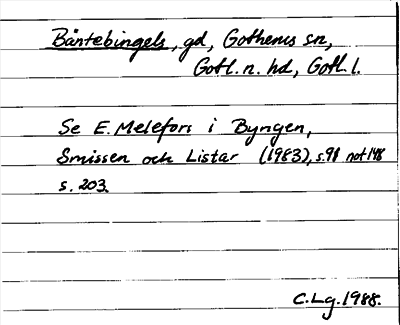 Bäntebingels, gd, Gothems sn,
Gotl. n. hd, Gotl. l.
Se E. Melefors i Byngen,
Smissen och Listar (1983), s. 98 not 148
s. 203.
C. Lg. 1988.